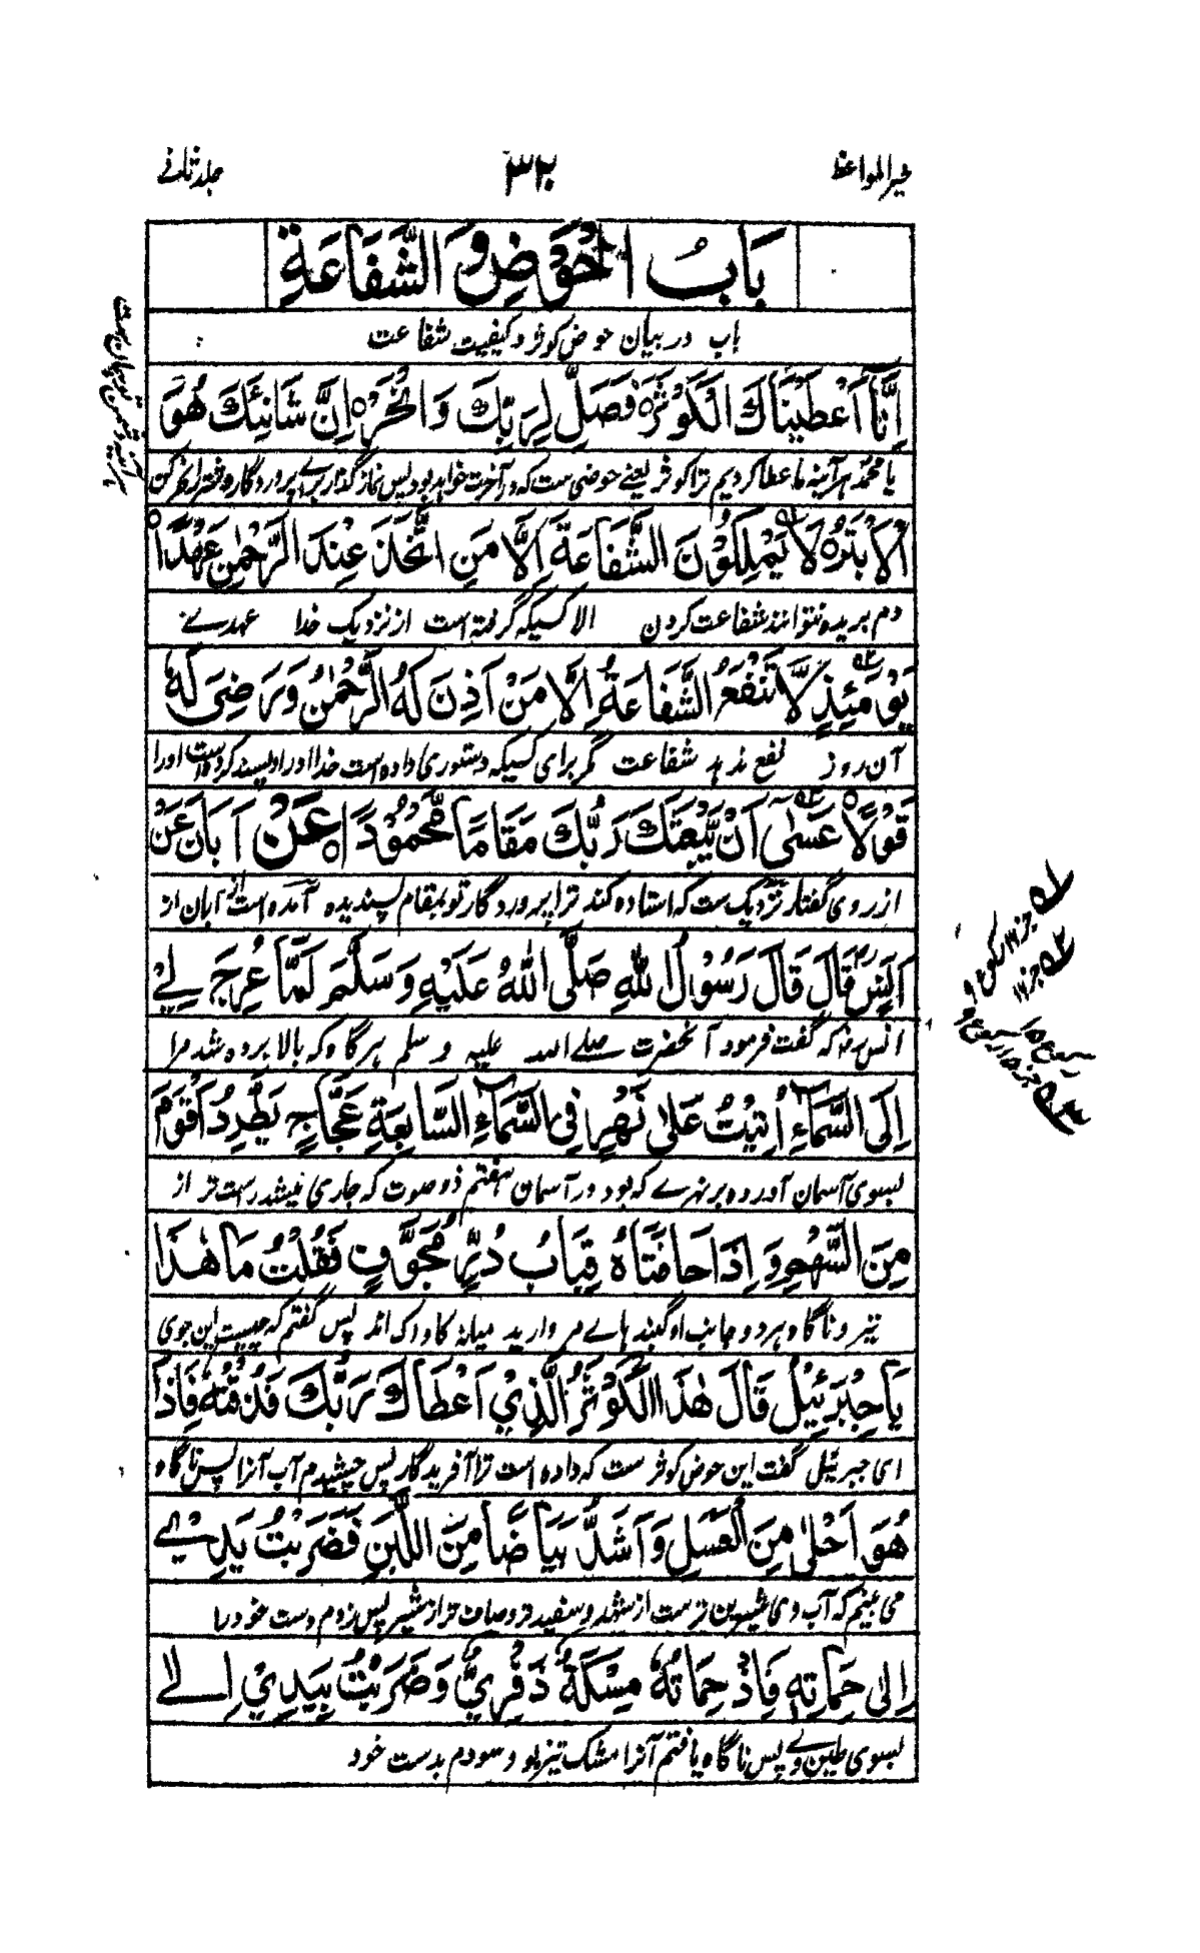 خیر المواعظ
۳۲۰
جلد ثانی
بَابُ الْحَوْضِ وَ الشَّفَاعَةِ
باب در بیان حوض کوثر و کیفیت شفاعت
اِنَّا اَعْطَيْنَاكَ الْكَوْثَرَ فَصَلِّ لِرَبِّكَ وَانْحَرْ اِنَّ شَانِئَكَ هُوَ
یا محمد هر آئینه ما عطا کردیم ترا کوثر یعنے حوضی ست که در آخرت خواهد بود پس نماز گذار برای پروردگار و شتر را نحر کن
الْاَبْتَرُ لَا يَمْلِكُوْنَ الشَّفَاعَةَ اِلَّا مَنِ اتَّخَذَ عِنْدَ الرَّحْمٰنِ عَهْدًا
دم بریده نتوانند شفاعت کردن الا کسیکه گرفته است از نزدیک خدا عهدے
يَوْمَئِذٍ لَّا تَنْفَعُ الشَّفَاعَةُ اِلَّا مَنْ اَذِنَ لَهُ الرَّحْمٰنُ وَرَضِيَ لَهٗ
آن روز نفع ندهد شفاعت مگر برای کسیکه دستوری داده است خدا او را و پسند کرده است او را
قَوْلًا عَسٰى اَنْ يَّبْعَثَكَ رَبُّكَ مَقَامًا مَّحْمُوْدًا عَنْ اَبَانَ عَنْ
از روی گفتار نزدیک ست که استاده کند ترا پروردگار تو بمقام پسندیده آمده است از آبان از
اَنَسٍ قَالَ قَالَ رَسُوْلُ اللّٰهِ صَلَّى اللّٰهُ عَلَيْهِ وَسَلَّمَ لَمَّا عُرِجَ لِيْ
انس رض که گفت فرمود آنحضرت صلے الله علیه و سلم هر گاه که بالا برده شد مرا
اِلَى السَّمَاءِ اُتِيْتُ عَلٰى نَهْرٍ فِي السَّمَاءِ السَّابِعَةِ عَجَّاجٍ يَطَّرِدُ اَقْوَمَ
بسوی آسمان آورده بر نهرے که بود در آسمان هفتم ذو صوت که جاری میشد راست تر از
مِنَ السَّهْمِ وَ اِذَا حَافَتَاهُ قِبَابُ دُرٍّ مُجَوَّفٍ فَقُلْتُ مَا هٰذَا
تیر و ناگاه هر دو جانب او گنبدهاے مروارید میانه کاواک اند پس گفتم که چیست این جوی
يَا جِبْرَئِيْلُ قَالَ هٰذَا الْكَوْثَرُ الَّذِيْ اَعْطَاكَ رَبُّكَ فَذُقْتُهٗ فَاِذَا
ای جبرئیل گفت این حوض کوثر ست که داده است ترا آفریدگار پس چشیدم آب آنرا پس ناگاه
هُوَ اَحْلٰى مِنَ الْعَسَلِ وَ اَشَدُّ بَيَاضًا مِنَ اللَّبَنِ فَضَرَبْتُ يَدِيْ
می بینم که آب وی شیرین تر ست از شهد و سفید تر و صاف تر از شیر پس زدم دست خود را
اِلٰى حَمَاتِهٖ فَاِذْ حِمَاتُهٗ مِسْكَةٌ ذَفِرِيٌّ وَضَرَبْتُ بِيَدِيْ اِلٰے
بسوی طین وے پس ناگاه یافتم آنرا مشک تیز بو و سودم بدست خود